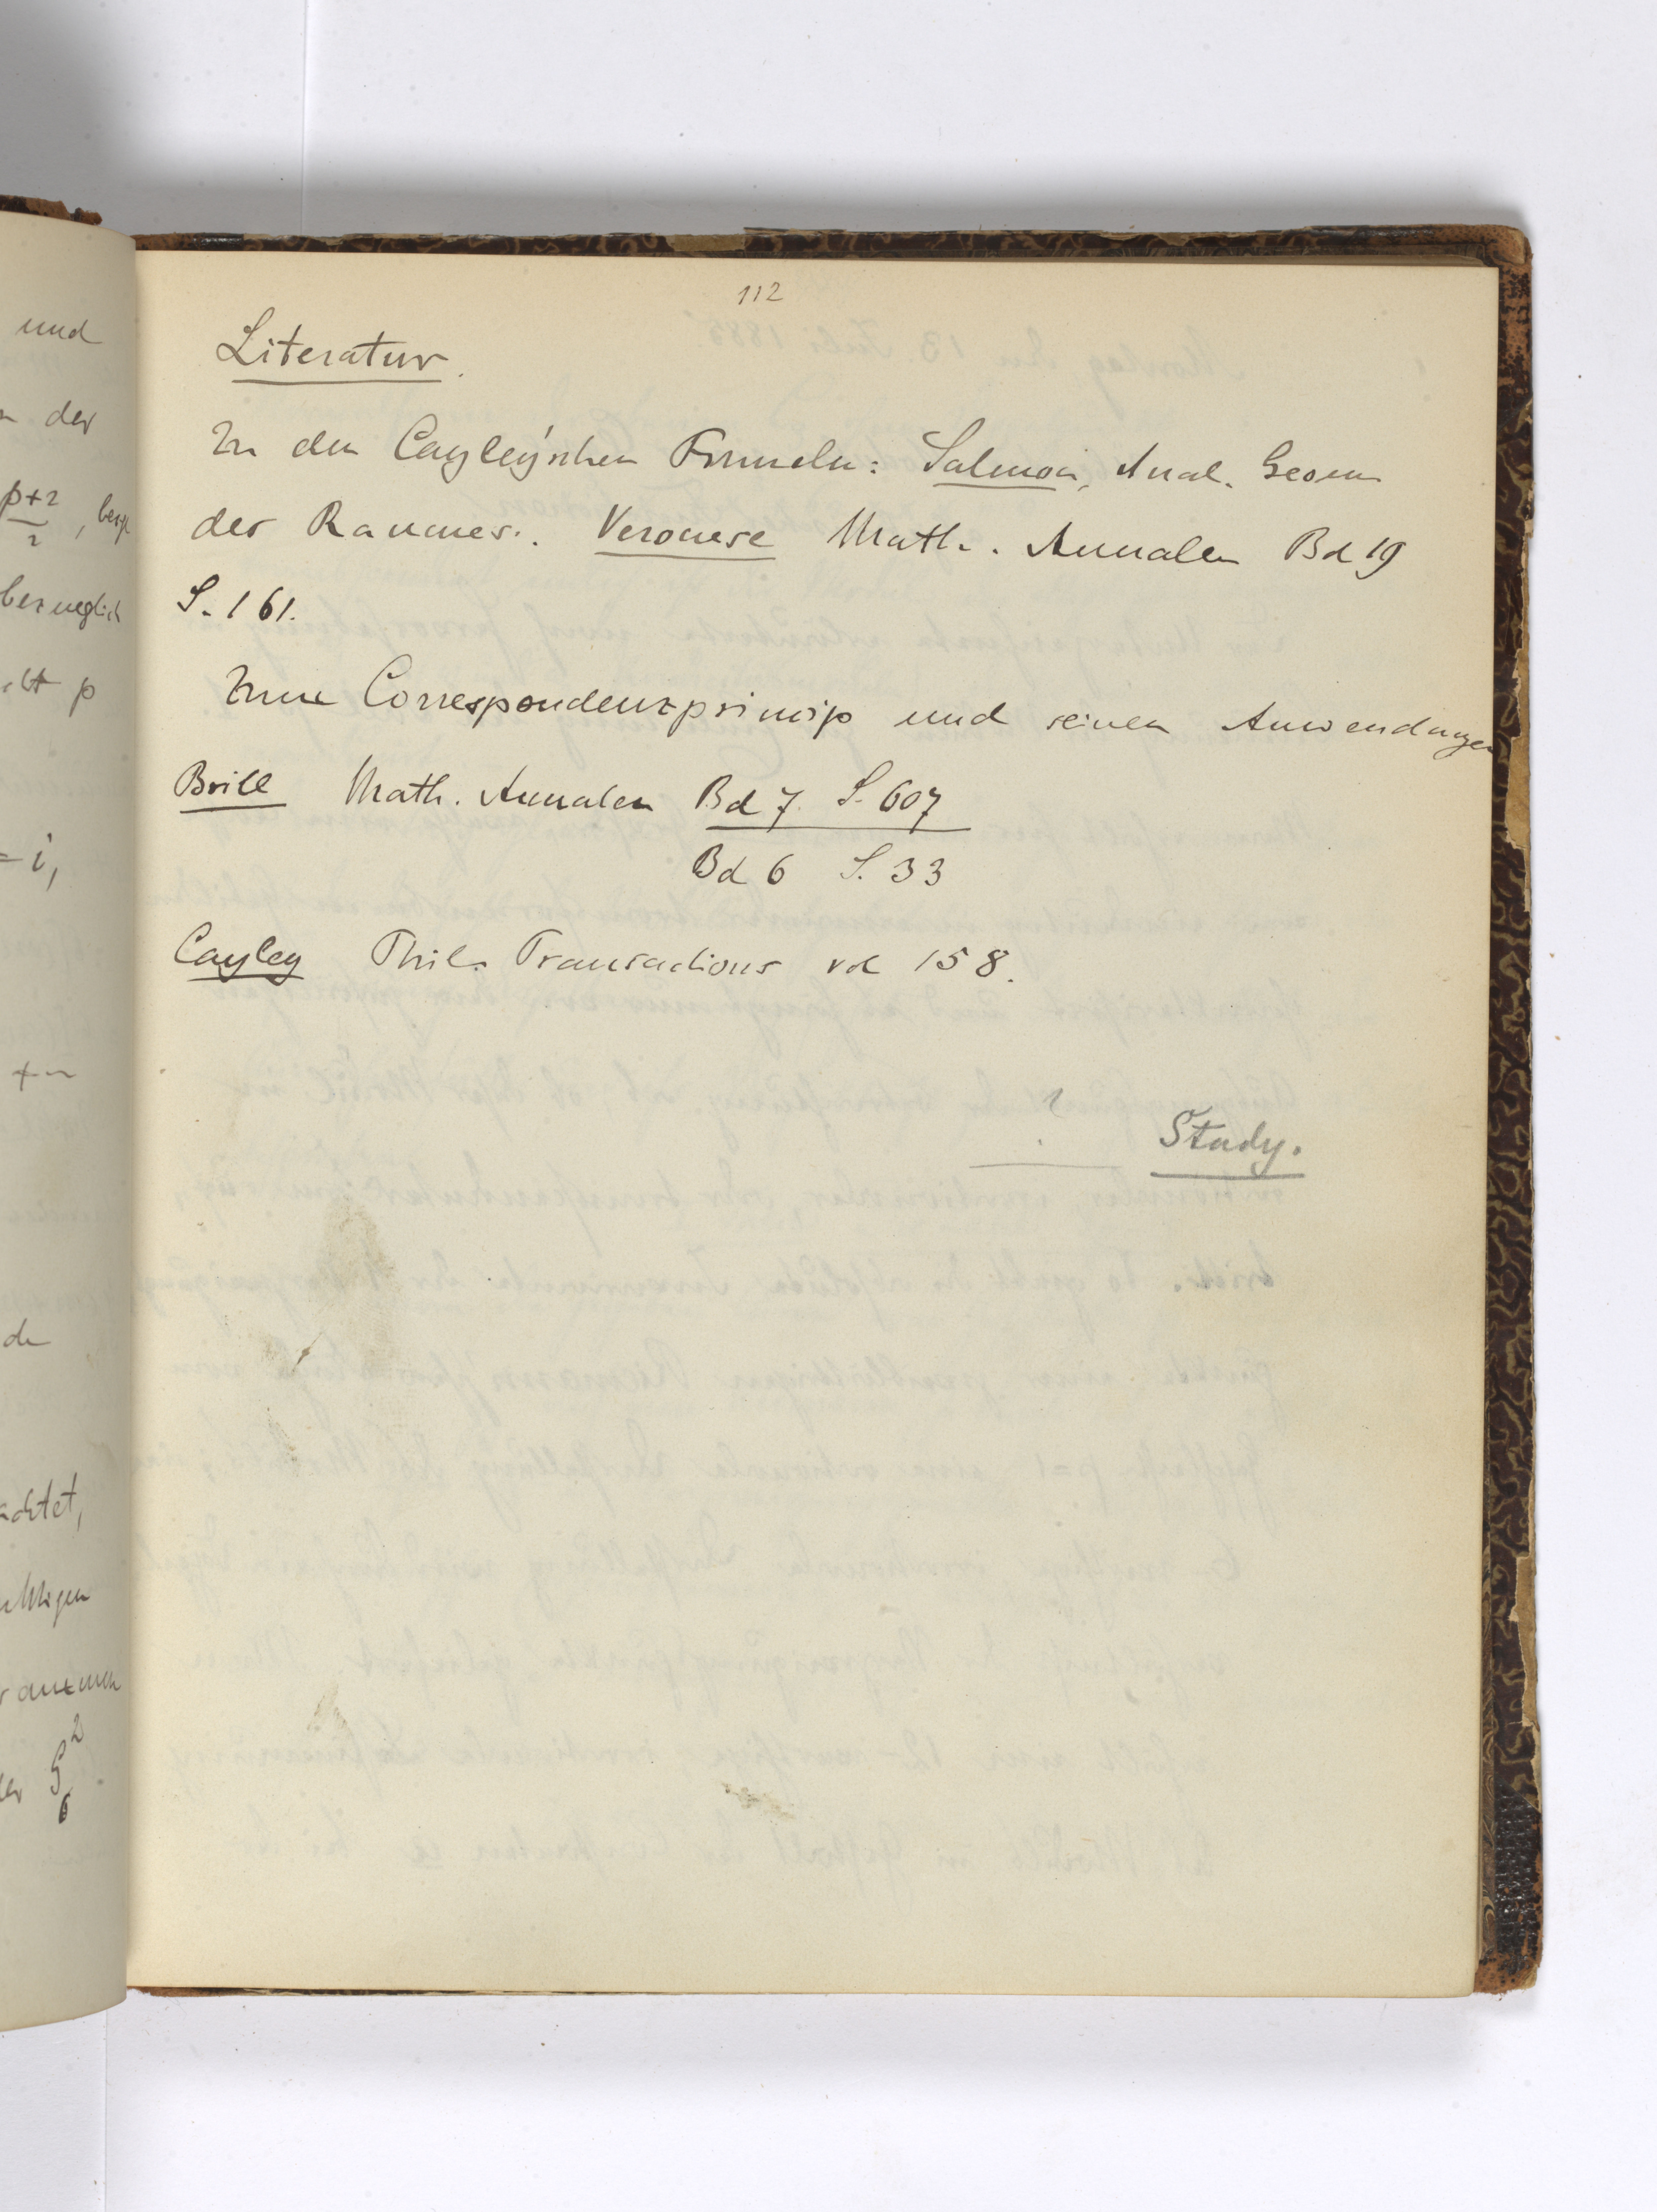 und
der
p+2
2
, bezgl
bezueglich
p
= i,
+
de
achtet,
der G₆²
112
Literatur.
Zu den Cayley'schen Formeln: Salmon, Anal. Geom
des Raumes. Veronese Math. Annalen Bd 19
S. 161.
Zum Correspondenzprincip und seinen Anwendungen
Brill Math. Annalen Bd 7. S. 607
Bd 6 S. 33
Cayley Phil. Transactions vol 158.
? Study.